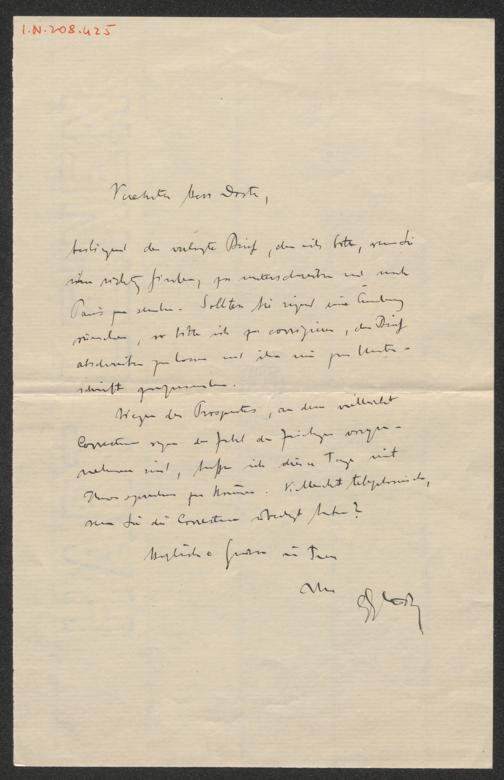 I.N. 208.425
Verehrter Herr Doktor,
beiliegend der verlangte Brief, den ich bitte, wenn Sie
ihn richtig finden, zu unterschreiben und nach
Paris zu senden. Sollten Sie irgend eine Änderung
wünschen, so bitte ich zu corrigieren, den Brief
abschreiben zu lassen und ihn mir zur Unter-
schrift
Wegen des Prospectes, an dem vielleicht
Correcturen wegen der Zahl der vorzu-
nehmen sind, hoffe ich dieser Tage mit
Ihnen sprechen zu können. Vielleicht telephonisch,
wenn Sie die Correcturen haben?
Herzliche Grüsse
Ihr